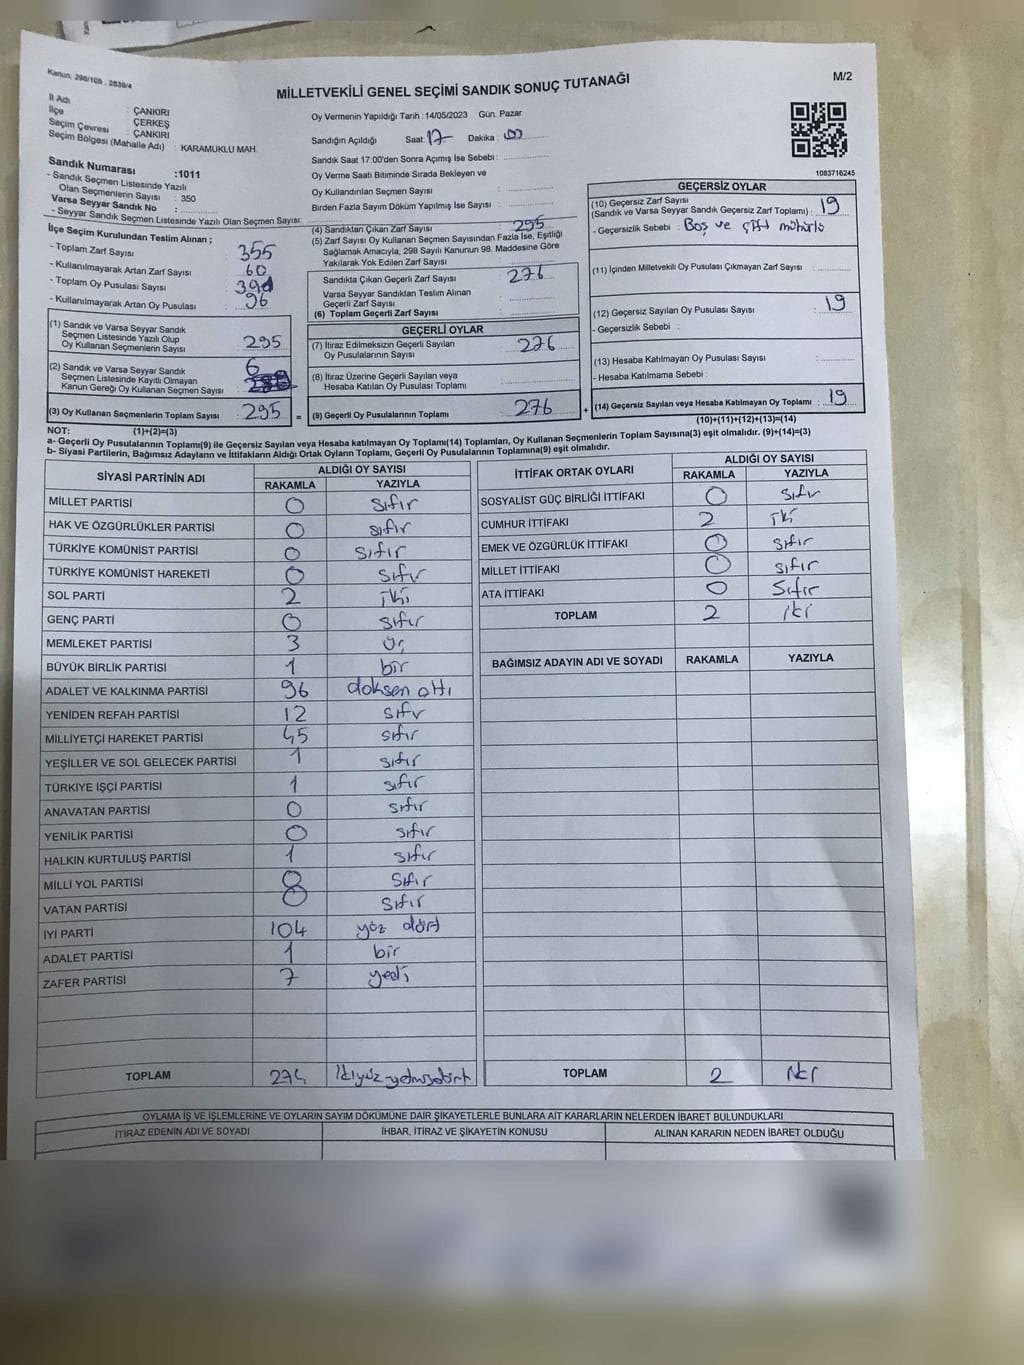 Kanun; 298/105 , 2839/4
MİLLETVEKİLİ GENEL SEÇİMİ SANDIK SONUÇ TUTANAĞI
M/2
İl Adı : ÇANKIRI
İlçe : ÇERKEŞ
Seçim Çevresi : ÇANKIRI
Seçim Bölgesi (Mahalle Adı) : KARAMUKLU MAH.
Sandık Numarası :1011
- Sandık Seçmen Listesinde Yazılı
Olan Seçmenlerin Sayısı : 350
Varsa Seyyar Sandık No :
- Seyyar Sandık Seçmen Listesinde Yazılı Olan Seçmen Sayısı:
Oy Vermenin Yapıldığı Tarih :14/05/2023 Gün. Pazar
Sandığın Açıldığı Saat 17 Dakika : 00
Sandık Saat 17:00'den Sonra Açımış İse Sebebi :
Oy Verme Saati Bitiminde Sırada Bekleyen ve
Oy Kullandırılan Seçmen Sayısı :
Birden Fazla Sayım Döküm Yapılmış İse Sayısı :
1083716245
İlçe Seçim Kurulundan Teslim Alınan ;
- Toplam Zarf Sayısı : 355
- Kullanılmayarak Artan Zarf Sayısı : 60
- Toplam Oy Pusulası Sayısı : 391
- Kullanılmayarak Artan Oy Pusulası : 96
(1) Sandık ve Varsa Seyyar Sandık
Seçmen Listesinde Yazılı Olup
Oy Kullanan Seçmenlerin Sayısı : 295
(2) Sandık ve Varsa Seyyar Sandık
Seçmen Listesinde Kayıtlı Olmayan
Kanun Gereği Oy Kullanan Seçmen Sayısı : 6
(3) Oy Kullanan Seçmenlerin Toplam Sayısı : 295
(4) Sandıktan Çıkan Zarf Sayısı : 295
(5) Zarf Sayısı Oy Kullanan Seçmen Sayısından Fazla İse, Eşitliği
Sağlamak Amacıyla, 298 Sayılı Kanunun 98. Maddesine Göre
Yakılarak Yok Edilen Zarf Sayısı :
Sandıkta Çıkan Geçerli Zarf Sayısı : 276
Varsa Seyyar Sandıktan Teslim Alınan
Geçerli Zarf Sayısı :
(6) Toplam Geçerli Zarf Sayısı :
GEÇERLİ OYLAR
(7) İtiraz Edilmeksizin Geçerli Sayılan
Oy Pusulalarının Sayısı : 276
(8) İtiraz Üzerine Geçerli Sayılan veya
Hesaba Katılan Oy Pusulası Toplamı :
= (9) Geçerli Oy Pusulalarının Toplamı : 276
GEÇERSİZ OYLAR
(10) Geçersiz Zarf Sayısı
(Sandık ve Varsa Seyyar Sandık Geçersiz Zarf Toplamı) : 19
- Geçersizlik Sebebi : Boş ve çift mühürlü
(11) İçinden Milletvekili Oy Pusulası Çıkmayan Zarf Sayısı :
(12) Geçersiz Sayılan Oy Pusulası Sayısı : 19
- Geçersizlik Sebebi :
(13) Hesaba Katılmayan Oy Pusulası Sayısı :
- Hesaba Katılmama Sebebi :
+ (14) Geçersiz Sayılan veya Hesaba Katılmayan Oy Toplamı : 19
NOT: (1)+(2)=(3)
(10)+(11)+(12)+(13)=(14)
a- Geçerli Oy Pusulalarının Toplamı(9) ile Geçersiz Sayılan veya Hesaba katılmayan Oy Toplamı(14) Toplamları, Oy Kullanan Seçmenlerin Toplam Sayısına(3) eşit olmalıdır. (9)+(14)=(3)
b- Siyasi Partilerin, Bağımsız Adayların ve İttifakların Aldığı Ortak Oyların Toplamı, Geçerli Oy Pusulalarının Toplamına(9) eşit olmalıdır.
SİYASİ PARTİNİN ADI ALDIĞI OY SAYISI
RAKAMLA YAZIYLA
MİLLET PARTİSİ 0 sıfır
HAK VE ÖZGÜRLÜKLER PARTİSİ 0 sıfır
TÜRKİYE KOMÜNİST PARTİSİ 0 sıfır
TÜRKİYE KOMÜNİST HAREKETİ 0 sıfır
SOL PARTİ 2 iki
GENÇ PARTİ 0 sıfır
MEMLEKET PARTİSİ 3 üç
BÜYÜK BİRLİK PARTİSİ 1 bir
ADALET VE KALKINMA PARTİSİ 96 doksen altı
YENİDEN REFAH PARTİSİ 12 sıfır
MİLLİYETÇİ HAREKET PARTİSİ 45 sıfır
YEŞİLLER VE SOL GELECEK PARTİSİ 1 sıfır
TÜRKİYE İŞÇİ PARTİSİ 1 sıfır
ANAVATAN PARTİSİ 0 sıfır
YENİLİK PARTİSİ 0 sıfır
HALKIN KURTULUŞ PARTİSİ 1 sıfır
MİLLİ YOL PARTİSİ 0 sıfır
VATAN PARTİSİ 0 sıfır
İYİ PARTİ 104 yüz dört
ADALET PARTİSİ 1 bir
ZAFER PARTİSİ 7 yedi
TOPLAM 274 ikiyüz yetmişdört
İTTİFAK ORTAK OYLARI ALDIĞI OY SAYISI
RAKAMLA YAZIYLA
SOSYALİST GÜÇ BİRLİĞİ İTTİFAKI 0 sıfır
CUMHUR İTTİFAKI 2 iki
EMEK VE ÖZGÜRLÜK İTTİFAKI 0 sıfır
MİLLET İTTİFAKI 0 sıfır
ATA İTTİFAKI 0 sıfır
TOPLAM 2 iki
BAĞIMSIZ ADAYIN ADI VE SOYADI RAKAMLA YAZIYLA
TOPLAM 2 iki
OYLAMA İŞ VE İŞLEMLERİNE VE OYLARIN SAYIM DÖKÜMÜNE DAİR ŞİKAYETLERLE BUNLARA AİT KARARLARIN NELERDEN İBARET BULUNDUKLARI
İTİRAZ EDENİN ADI VE SOYADI İHBAR, İTİRAZ VE ŞİKAYETİN KONUSU ALINAN KARARIN NEDEN İBARET OLDUĞU